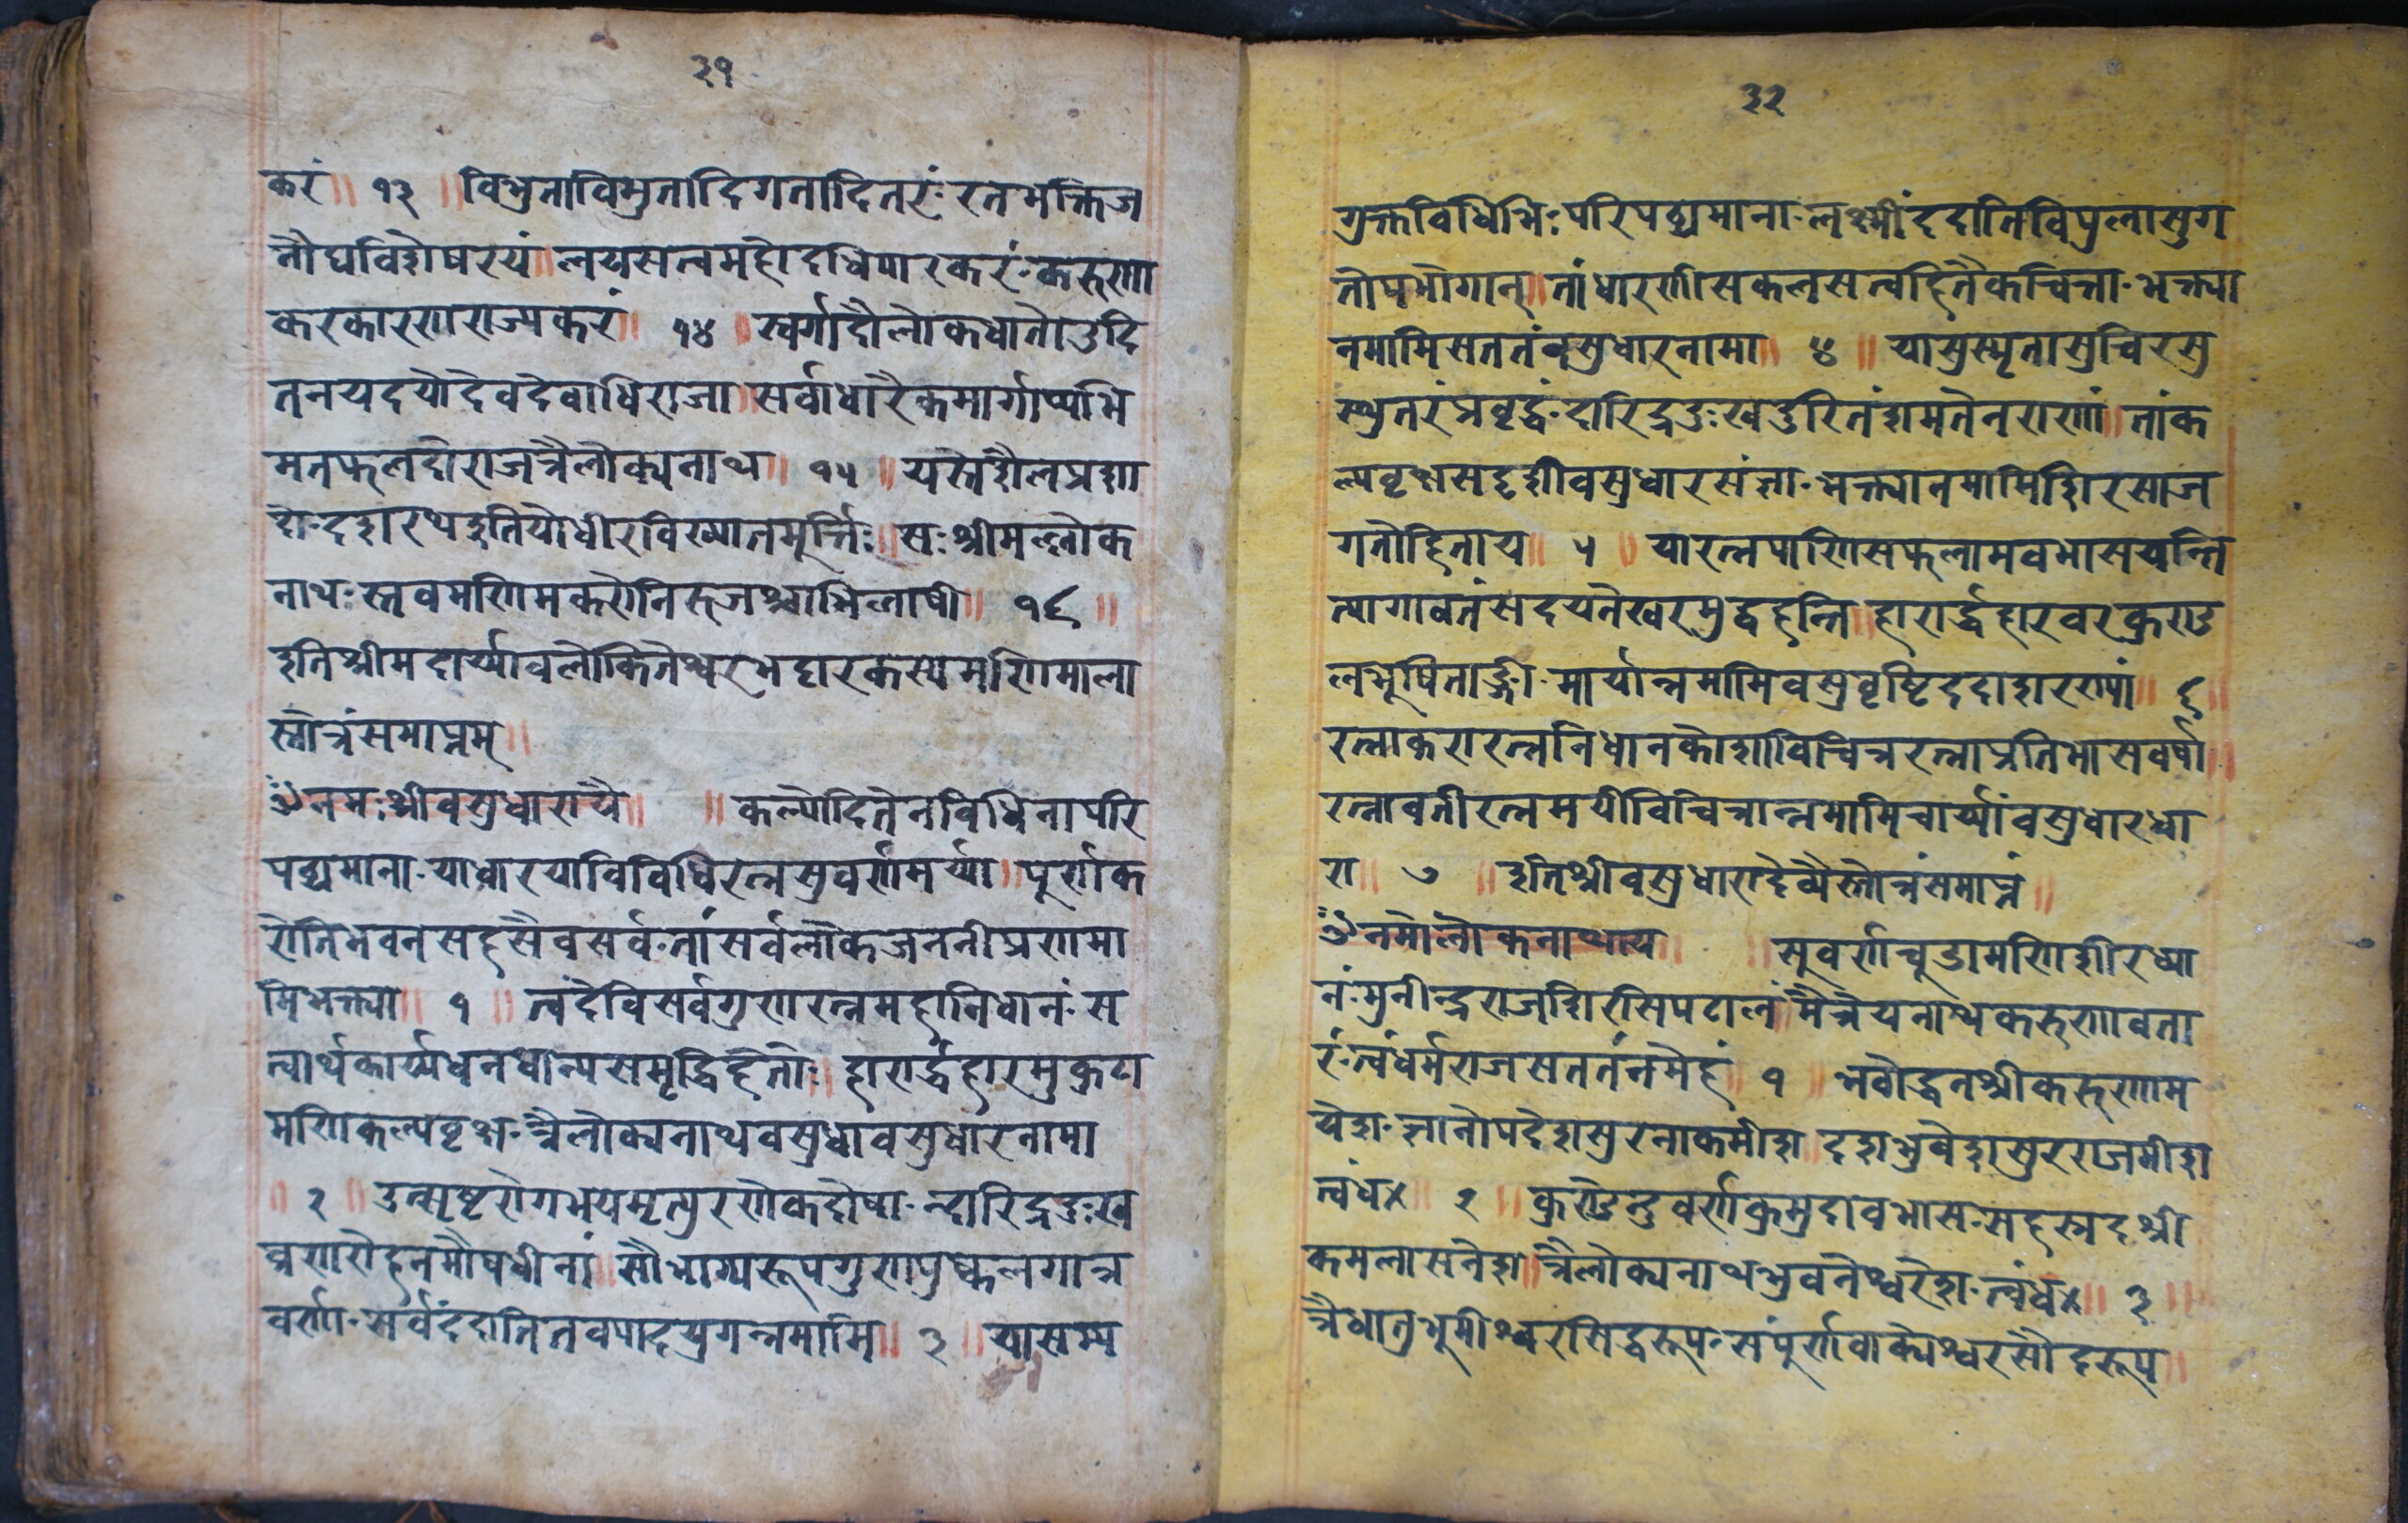 ३१
करं॥ १३ ॥विभुनाविमुतादिगतादितरं॰रतभक्तिज
नौघविशेषरयं॥लयसत्वमहोदधिपारकरं॰करुणा
करकारणराज्यकरं॥ १४ ॥स्वर्गादौलोकधातोउदि
तनयदयोदेवदेवाधिराजा॥सर्वाधारैकमार्गाप्यभि
मतफलदोराजत्रैलोक्यनाथ॥ १५ ॥यस्तेशैलप्रज्ञा
दो॰ददारथदुतियोधीरविख्यातमूर्त्तिः॥सःश्रीमल्लोक
नाथ॰स्तवमणिमकरोनिरुजश्चाभिलाषी॥ १६ ॥
इतिश्रीमदार्य्यावलोकितेश्वरभट्टारकस्येमणिमाला
स्तोत्रंसमाप्तम्॥
ॐनमःश्रीवसुधारायै॥ ॥कल्पोदितेनविधिनापरि
पठ्यमाना॰याधारयाविविधिरत्नसुवर्णमर्य्या॥पूर्णाक
रोतिभवनसहसैवसर्व॰तांसर्वलोकजननीप्रणमा
मिभक्त्या॥ १ ॥त्वंदेविसर्वगुणरत्नमहानिधानं॰स
त्वार्थकार्य्यधनधान्यसमृद्धिहेतोः॥हारार्द्धहारमुकुटा
मणिकल्पवृक्ष॰त्रैलोक्यनाथवसुधावसुधारनामा
॥ २ ॥उत्सृष्टरोगभयमृत्युरशोकदोषा॰न्दारिद्रदुःख
व्रणरोहनमौषधीनां॥सौभाग्यरूपगुणपुष्कलगात्र
वर्णा॰सर्वंददातितवपादयुगन्नमामि॥ ३ ॥यासम्य
३२
गुक्तविधिभिः॰परिपठ्यमाना॰लक्ष्मींददातिविपुलासुग
तोपभोगान्॥तांधारणीसकलसत्वहितैकचित्ता॰भक्त्या
नमामिसततंवसुधारनामा॥ ४ ॥यासुस्मृतासुचिरसु
स्थुतरंप्रवृद्धं॰दारिद्रदुःखदुरितंशमतेनराणां॥तांक
ल्पवृक्षसदृशीवसुधारसंज्ञा॰भक्त्यानमामिशिरसाज
गतोहिताय॥ ५ ॥यारत्नपाणिसफलामवभासयन्ति
त्यागावतंसदयतेस्वरमुद्वहन्ति॥हारार्द्धहारवरकुण्ड
लभूषिताङ्गी॰मार्यान्नमामिवसुवृष्टिंददाशरणपां॥ ६ ॥
रत्नाकरारत्ननिधानकोशाविचित्ररत्नाप्रतिभासवर्षा॥
रत्नावतीरत्नमयीविचित्रान्नमामिचार्य्यांवसुधारधा
रा॥ ७ ॥इतिश्रीवसुधारादेव्यैस्तोत्रंसमाप्तं॥
ॐनमोलोकनाथाय॥ ॥सूवर्णचूडामणिशीरध्या
नं॰मुनीन्द्रराजशिरसिपटालं॥मैत्रेयनाथकरुणावता
रं॰त्वंधर्मराजसततंनमेहं॥ १ ॥भवोद्धतश्रीकरुणाम
येश॰ज्ञानोपदेशसुरनाकमीश॥ददाभुवेशसुरराजमीश
त्वंध४॥ २ ॥कुण्डेन्दुवर्णाकुमुदावभास॰सहस्रदश्री
कमलासनेश॥त्रैलोक्यनाथभुवनेश्वरेश॰त्वंध४॥ ३ ॥
त्रैधातुभूमीश्वरसिद्धरूप॰संपूर्णवाक्येश्वरसौद्रूप॥